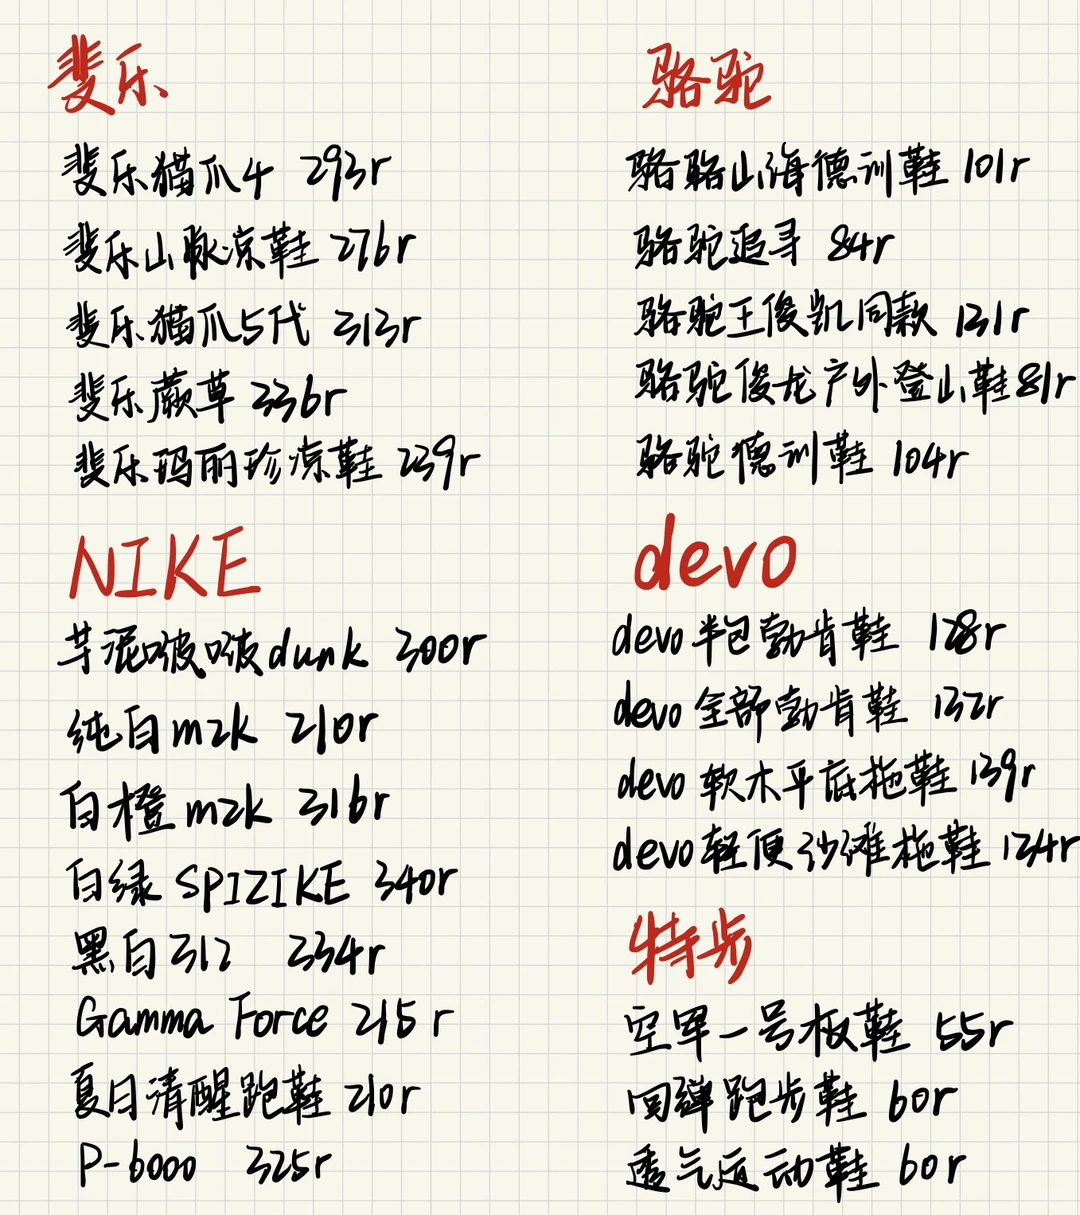 斐乐
斐乐猫爪4 293r
斐乐山脉凉鞋 276r
斐乐猫爪5代 313r
斐乐蕨草 336r
斐乐玛丽珍凉鞋 239r
NIKE
芋泥啵啵dunk 300r
纯白m2k 210r
白橙m2k 316r
白绿 SPIZIKE 340r
黑白312 334r
Gamma Force 215r
夏日清醒跑鞋 210r
P-6000 325r
骆驼
骆骆山海德训鞋 101r
骆驼追寻 84r
骆驼王俊凯同款 131r
骆驼俊龙户外登山鞋81r
骆驼德训鞋 104r
devo
devo半包勃肯鞋 128r
devo全部勃肯鞋 132r
devo软木平底拖鞋139r
devo轻便沙滩拖鞋134r
特步
空军一号板鞋 55r
回弹跑步鞋 60r
透气运动鞋 60r